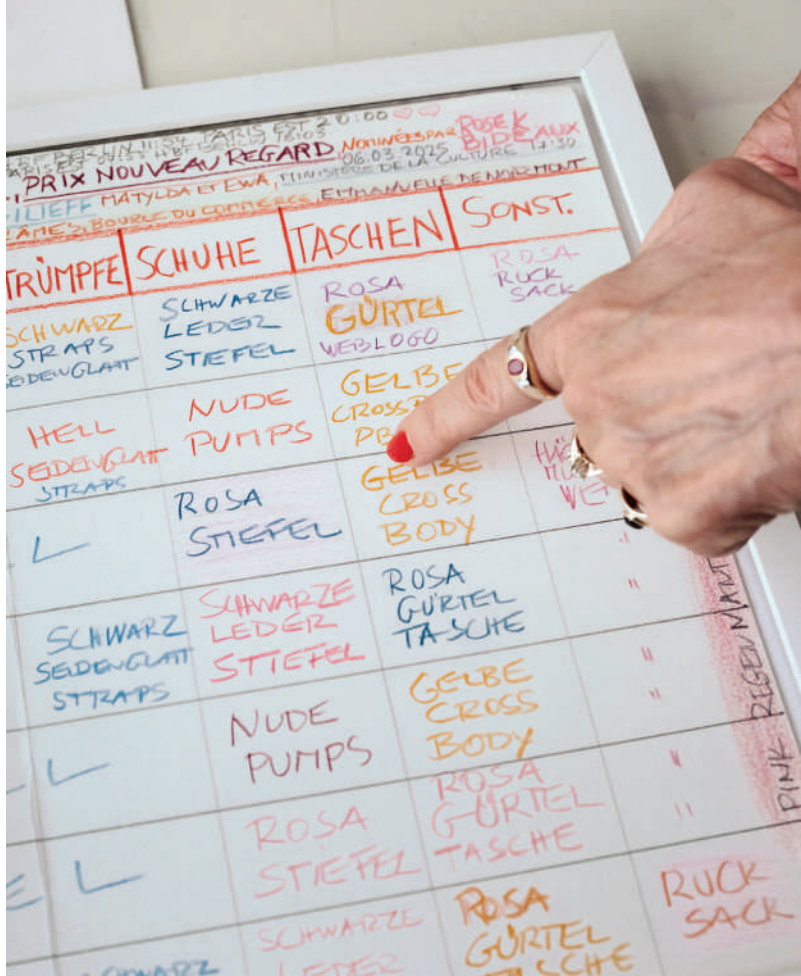 BERLIN 11:54 PARIS EST 20:00
PRIX NOUVEAU REGARD NOMINÉES PAR ROSE K BIDEAUX
06.03.2025 17:30
MATYLDA ET EWA, MINISTÈRE DE LA CULTURE
BOURSE DU COMMERCE, EMMANUELLE DE NOIRMONT
TRÜMPFE SCHUHE TASCHEN SONST.
SCHWARZ
STRAPS
SEIDENGLATT
SCHWARZE
LEDER
STIEFEL
ROSA
GÜRTEL
WEBLOGO
ROSA
RUCK
SACK
HELL
SEIDENGLATT
STRAPS
NUDE
PUMPS
GELBE
ROSA
STIEFEL
GELBE
CROSS
BODY
SCHWARZ
SEIDENGLATT
STRAPS
SCHWARZE
LEDER
STIEFEL
ROSA
GÜRTEL
TASCHE
"
"
NUDE
PUMPS
GELBE
CROSS
BODY
"
"
ROSA
STIEFEL
ROSA
GÜRTEL
TASCHE
"
"
PINK REGENMANT
SCHWARZ
SCHWARZE
LEDER
ROSA
GÜRTEL
TASCHE
RUCK
SACK